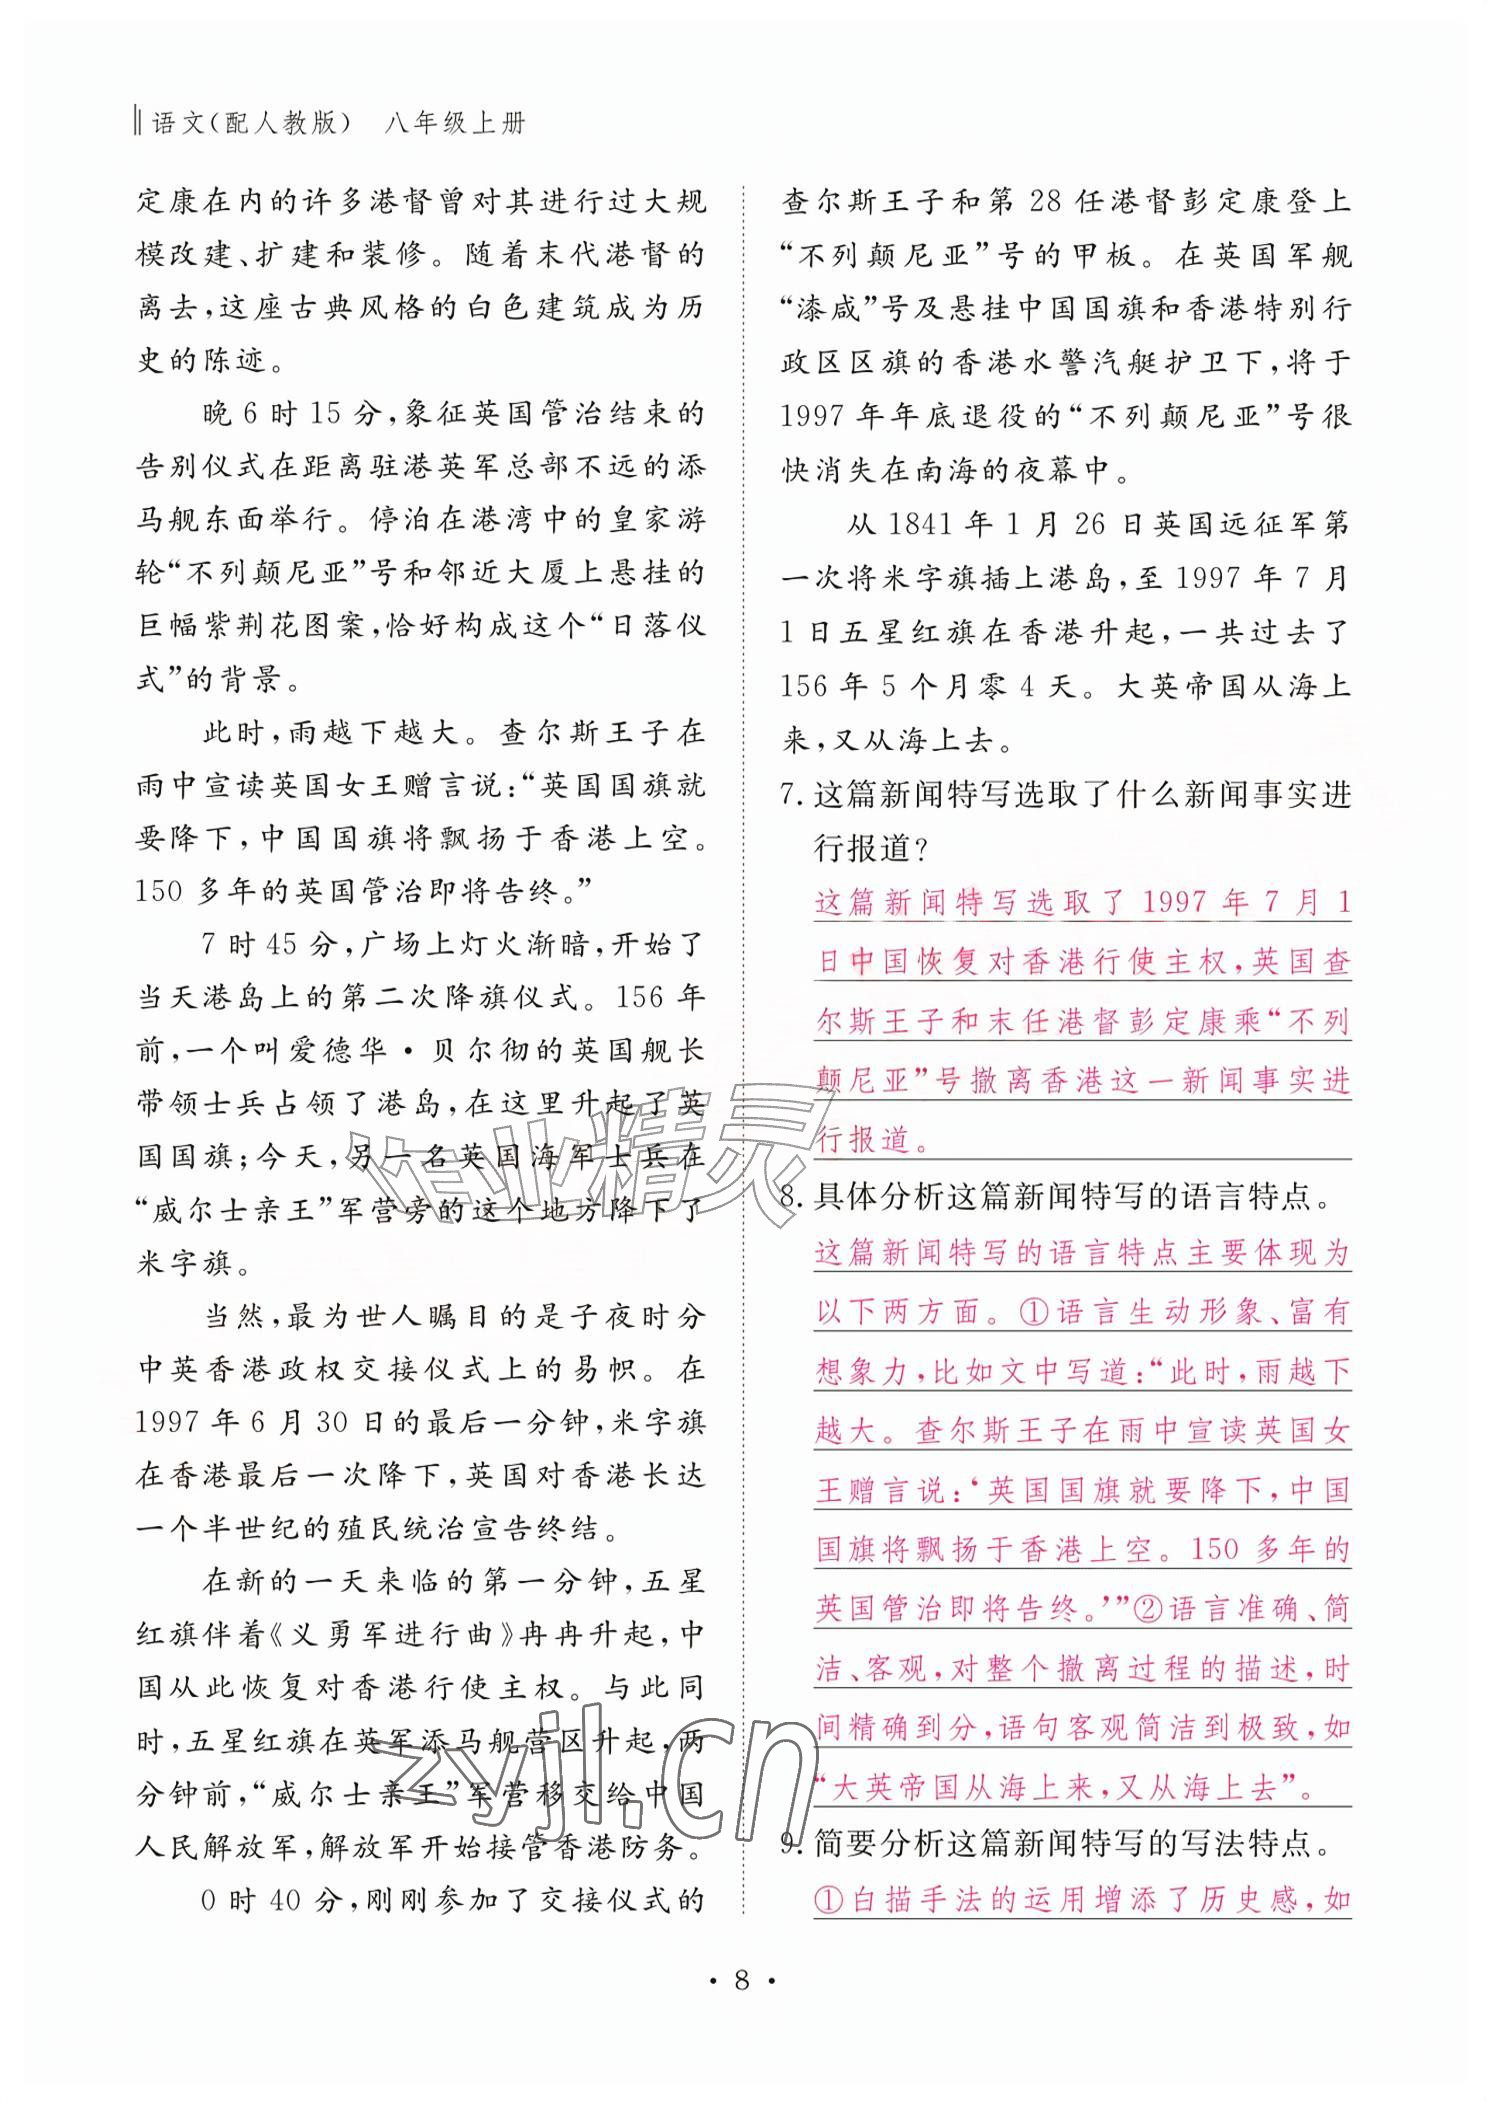 语文(配人教版) 八年级上册
定康在内的许多港督曾对其进行过大规
模改建、扩建和装修。随着末代港督的
离去,这座古典风格的白色建筑成为历
史的陈迹。
晚 6 时 15 分,象征英国管治结束的
告别仪式在距离驻港英军总部不远的添
马舰东面举行。停泊在港湾中的皇家游
轮“不列颠尼亚”号和邻近大厦上悬挂的
巨幅紫荆花图案,恰好构成这个“日落仪
式”的背景。
此时,雨越下越大。查尔斯王子在
雨中宣读英国女王赠言说:“英国国旗就
要降下,中国国旗将飘扬于香港上空。
150 多年的英国管治即将告终。”
7 时 45 分,广场上灯火渐暗,开始了
当天港岛上的第二次降旗仪式。156 年
前,一个叫爱德华·贝尔彻的英国舰长
带领士兵占领了港岛,在这里升起了英
国国旗;今天,另一名英国海军士兵在
“威尔士亲王”军营旁的这个地方降下了
米字旗。
当然,最为世人瞩目的是子夜时分
中英香港政权交接仪式上的易帜。在
1997 年 6 月 30 日的最后一分钟,米字旗
在香港最后一次降下,英国对香港长达
一个半世纪的殖民统治宣告终结。
在新的一天来临的第一分钟,五星
红旗伴着《义勇军进行曲》冉冉升起,中
国从此恢复对香港行使主权。与此同
时,五星红旗在英军添马舰营区升起,两
分钟前,“威尔士亲王”军营移交给中国
人民解放军,解放军开始接管香港防务。
0 时 40 分,刚刚参加了交接仪式的
查尔斯王子和第 28 任港督彭定康登上
“不列颠尼亚”号的甲板。在英国军舰
“漆咸”号及悬挂中国国旗和香港特别行
政区区旗的香港水警汽艇护卫下,将于
1997 年年底退役的“不列颠尼亚”号很
快消失在南海的夜幕中。
从 1841 年 1 月 26 日英国远征军第
一次将米字旗插上港岛,至 1997 年 7 月
1 日五星红旗在香港升起,一共过去了
156 年 5 个月零 4 天。大英帝国从海上
来,又从海上去。
7. 这篇新闻特写选取了什么新闻事实进
行报道?
这篇新闻特写选取了 1997 年 7 月 1
日中国恢复对香港行使主权,英国查
尔斯王子和末任港督彭定康乘“不列
颠尼亚”号撤离香港这一新闻事实进
行报道。
8. 具体分析这篇新闻特写的语言特点。
这篇新闻特写的语言特点主要体现为
以下两方面。①语言生动形象、富有
想象力,比如文中写道:“此时,雨越下
越大。查尔斯王子在雨中宣读英国女
王赠言说:‘英国国旗就要降下,中国
国旗将飘扬于香港上空。150 多年的
英国管治即将告终。’”②语言准确、简
洁、客观,对整个撤离过程的描述,时
间精确到分,语句客观简洁到极致,如
“大英帝国从海上来,又从海上去”。
9. 简要分析这篇新闻特写的写法特点。
①白描手法的运用增添了历史感,如
· 8 ·
作业精灵
zyjl.cn